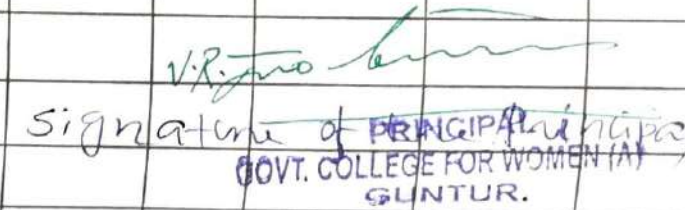 V.R.
Signature of Principal
PRINCIPAL
GOVT. COLLEGE FOR WOMEN (A)
GUNTUR.